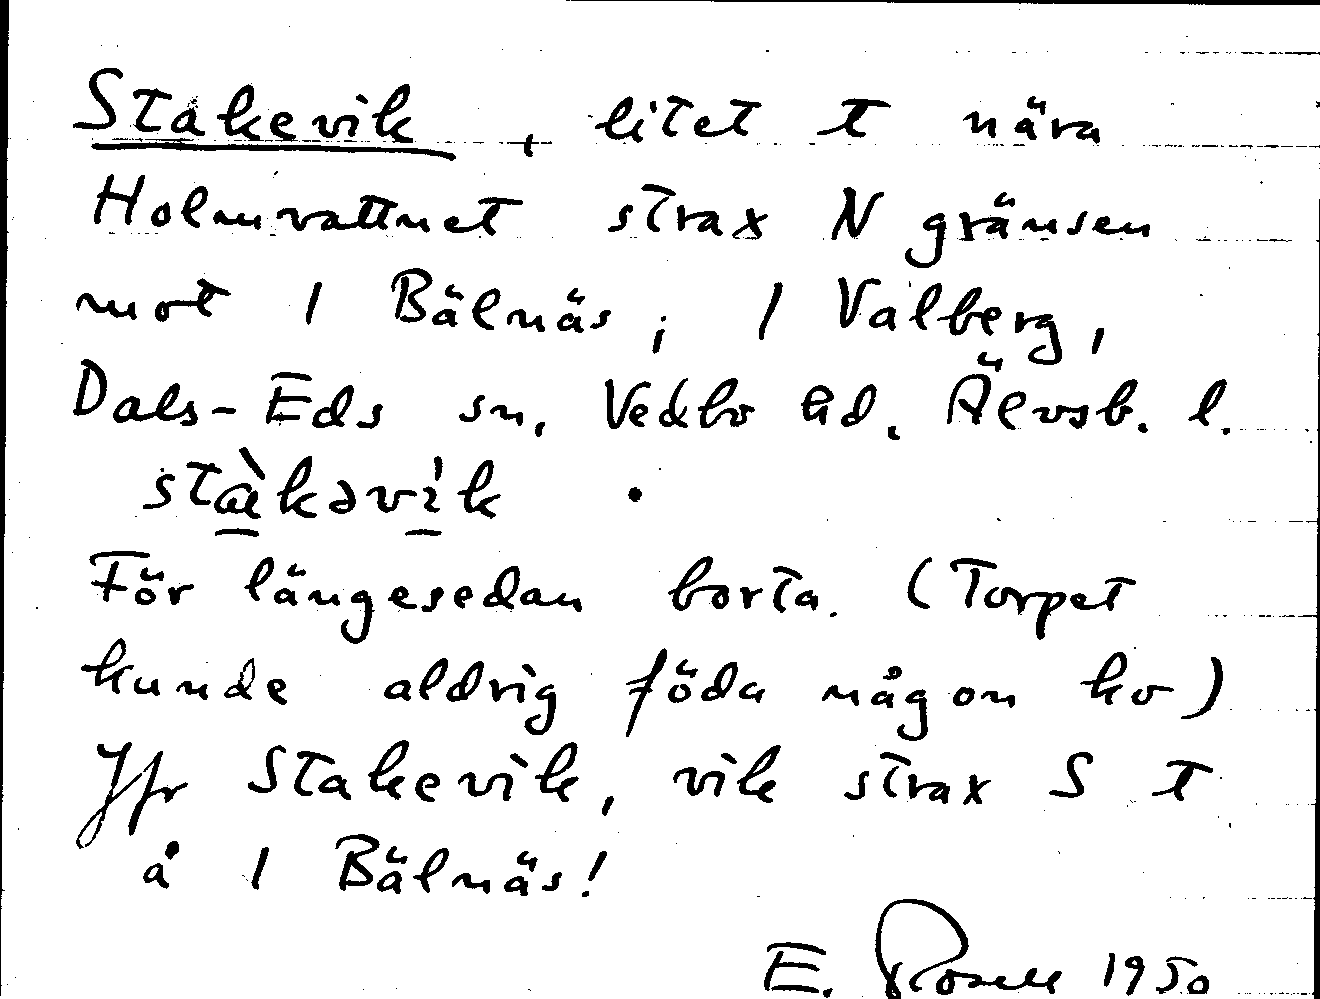 Stakevik, litet t nära
Holmvattnet strax N gränsen
mot 1 Bälnäs, 1 Valberg,
Dals-Eds sn, Vedbo hd. Älvsb. l.
stàkəvi̍k .
För längesedan borta. (Torpet
kunde aldrig föda någon ko)
Jfr Stakevik, vik strax S t
å 1 Bälnäs!
E. Rosell 1950